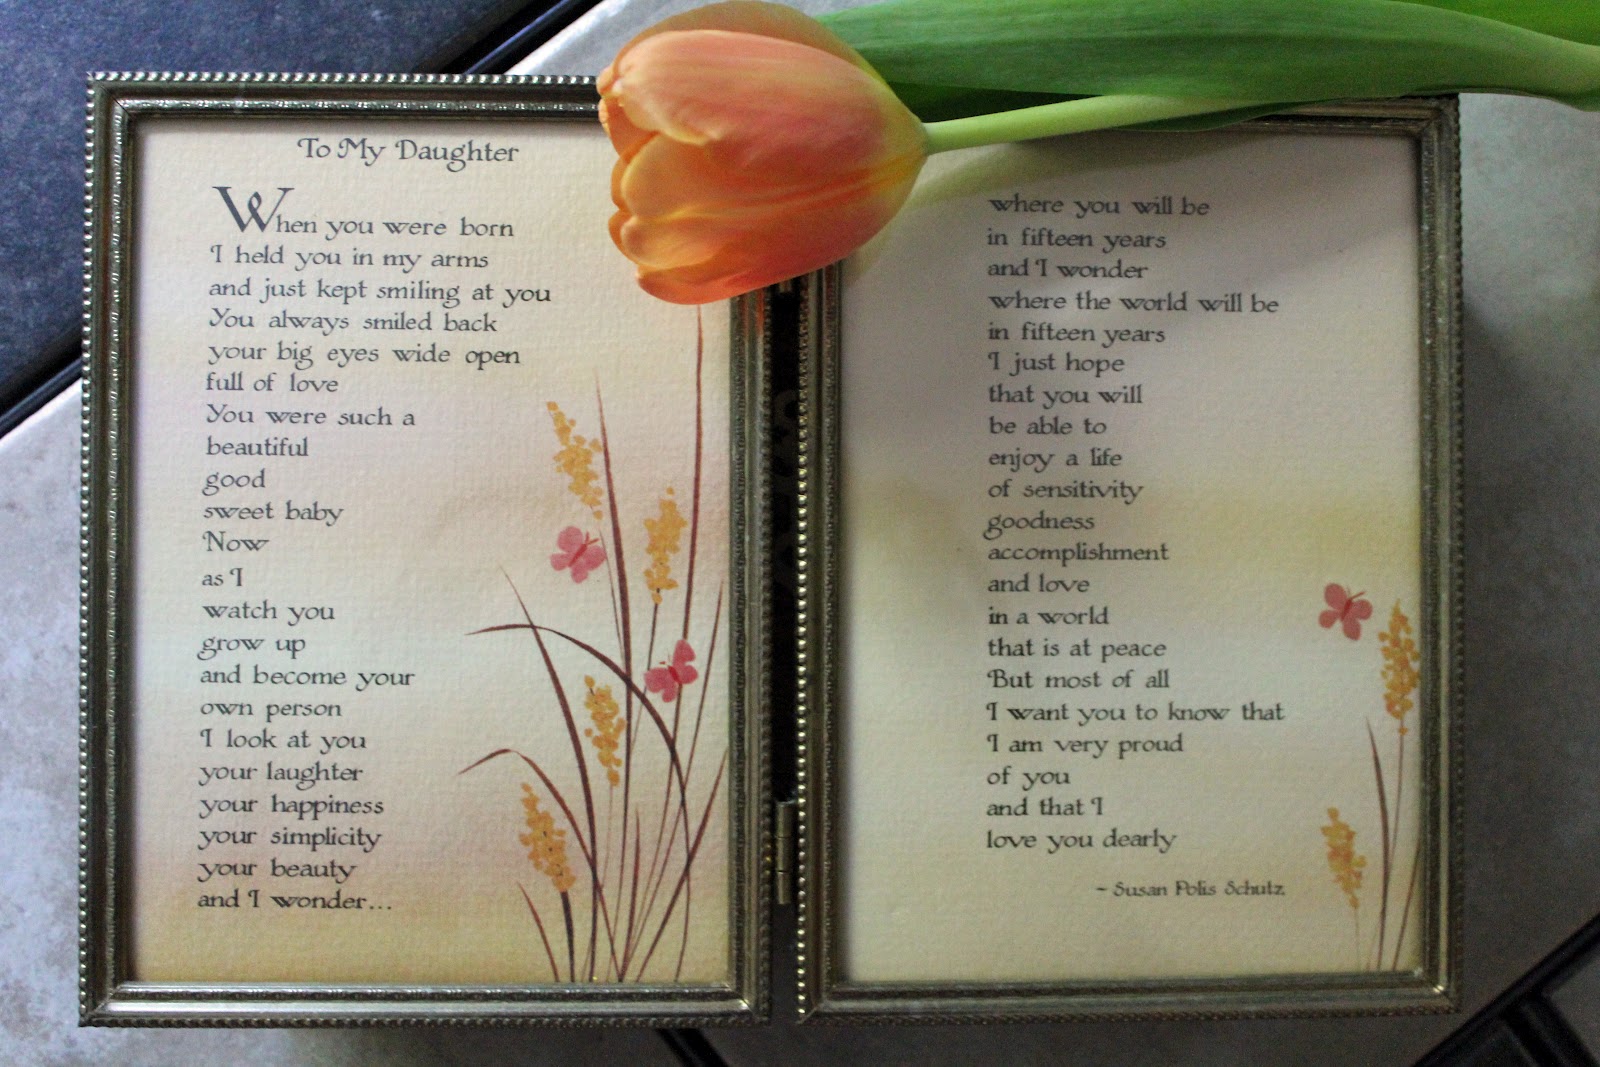 To My Daughter
When you were born
I held you in my arms
and just kept smiling at you
You always smiled back
your big eyes wide open
full of love
You were such a
beautiful
good
sweet baby
Now
as I
watch you
grow up
and become your
own person
I look at you
your laughter
your happiness
your simplicity
your beauty
and I wonder...
where you will be
in fifteen years
and I wonder
where the world will be
in fifteen years
I just hope
that you will
be able to
enjoy a life
of sensitivity
goodness
accomplishment
and love
in a world
that is at peace
But most of all
I want you to know that
I am very proud
of you
and that I
love you dearly
~ Susan Polis Schutz